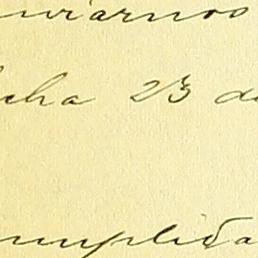 nviarnos
cha 23 de
umplida